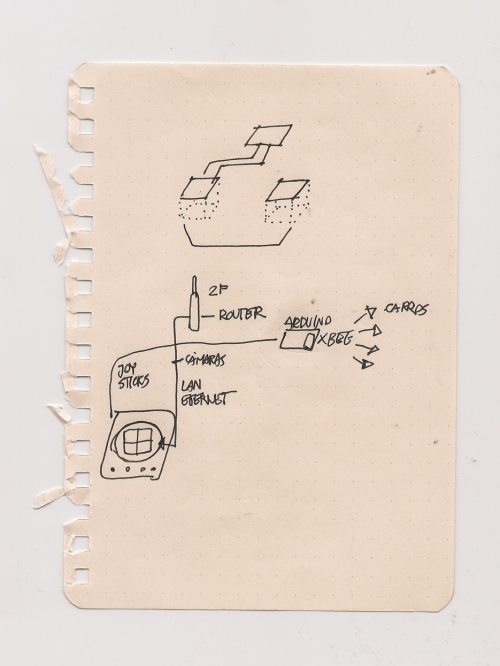 2P
ROUTER
ARDUINO
XBEE
CARROS
CÁMARAS
JOY
STICKS
LAN
ETERNET